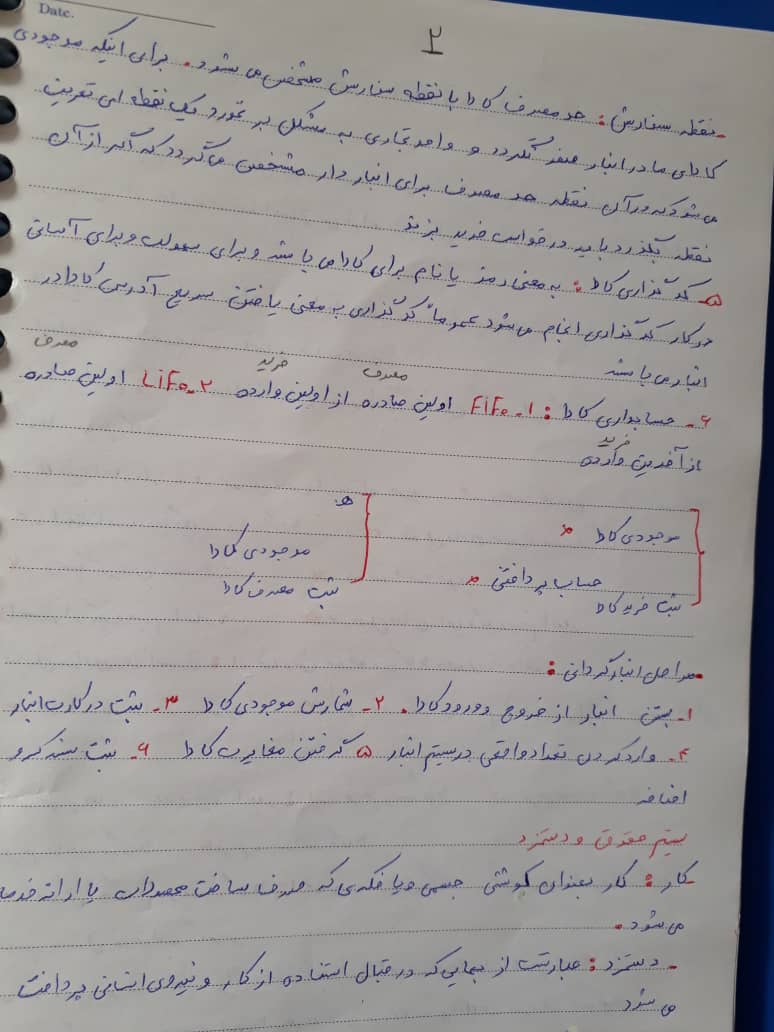 Date.
۲
- نقطه سفارش : حد مصرف کالا با نقطه سفارش مشخص می شود . برای اینکه موجودی
کالای ما در انبار صفر نگردد و واحد تجاری به مشکل بر نخورد یک نقطه ای تعریف
می شود که در آن نقطه حد مصرف برای انبار دار مشخص می گردد که اگر از آن
نقطه بگذرد باید درخواست خرید بزند
۵- کد گذاری کالا : به معنی رمز یا نام برای کالا می باشد و برای سهولت و برای آسانی
در کار کد گذاری انجام می شود عموماً کد گذاری به معنی یافتن سریع آدرس کالا در
انبار می باشد
مصرف خرید مصرف
۶- حسابداری کالا : ۱- FiFo اولین صادره از اولین وارده ۲- LiFo اولین صادره
خرید
از آخرین وارده
موجودی کالا × ه
حساب پرداختنی × موجودی کالا
ثبت خرید کالا ثبت مصرف کالا
مراحل انبارگردانی :
۱- بستن انبار از خروج و ورود کالا . ۲- شمارش موجودی کالا ۳- ثبت در کارت انبار
۴- وارد کردن تعداد واقعی در سیستم انبار ۵ گرفتن مغایرت کالا ۶- ثبت سند کسر و
اضافه
سیستم حقوق و دستمزد
- کار : کار بعنوان کوششی جسمی و یا فکری که صرف ساخت محصولات یا ارائه خدمات
می شود .
- دستمزد : عبارتست از بهایی که در قبال استفاده از کار و نیروی انسانی پرداخت
می شود